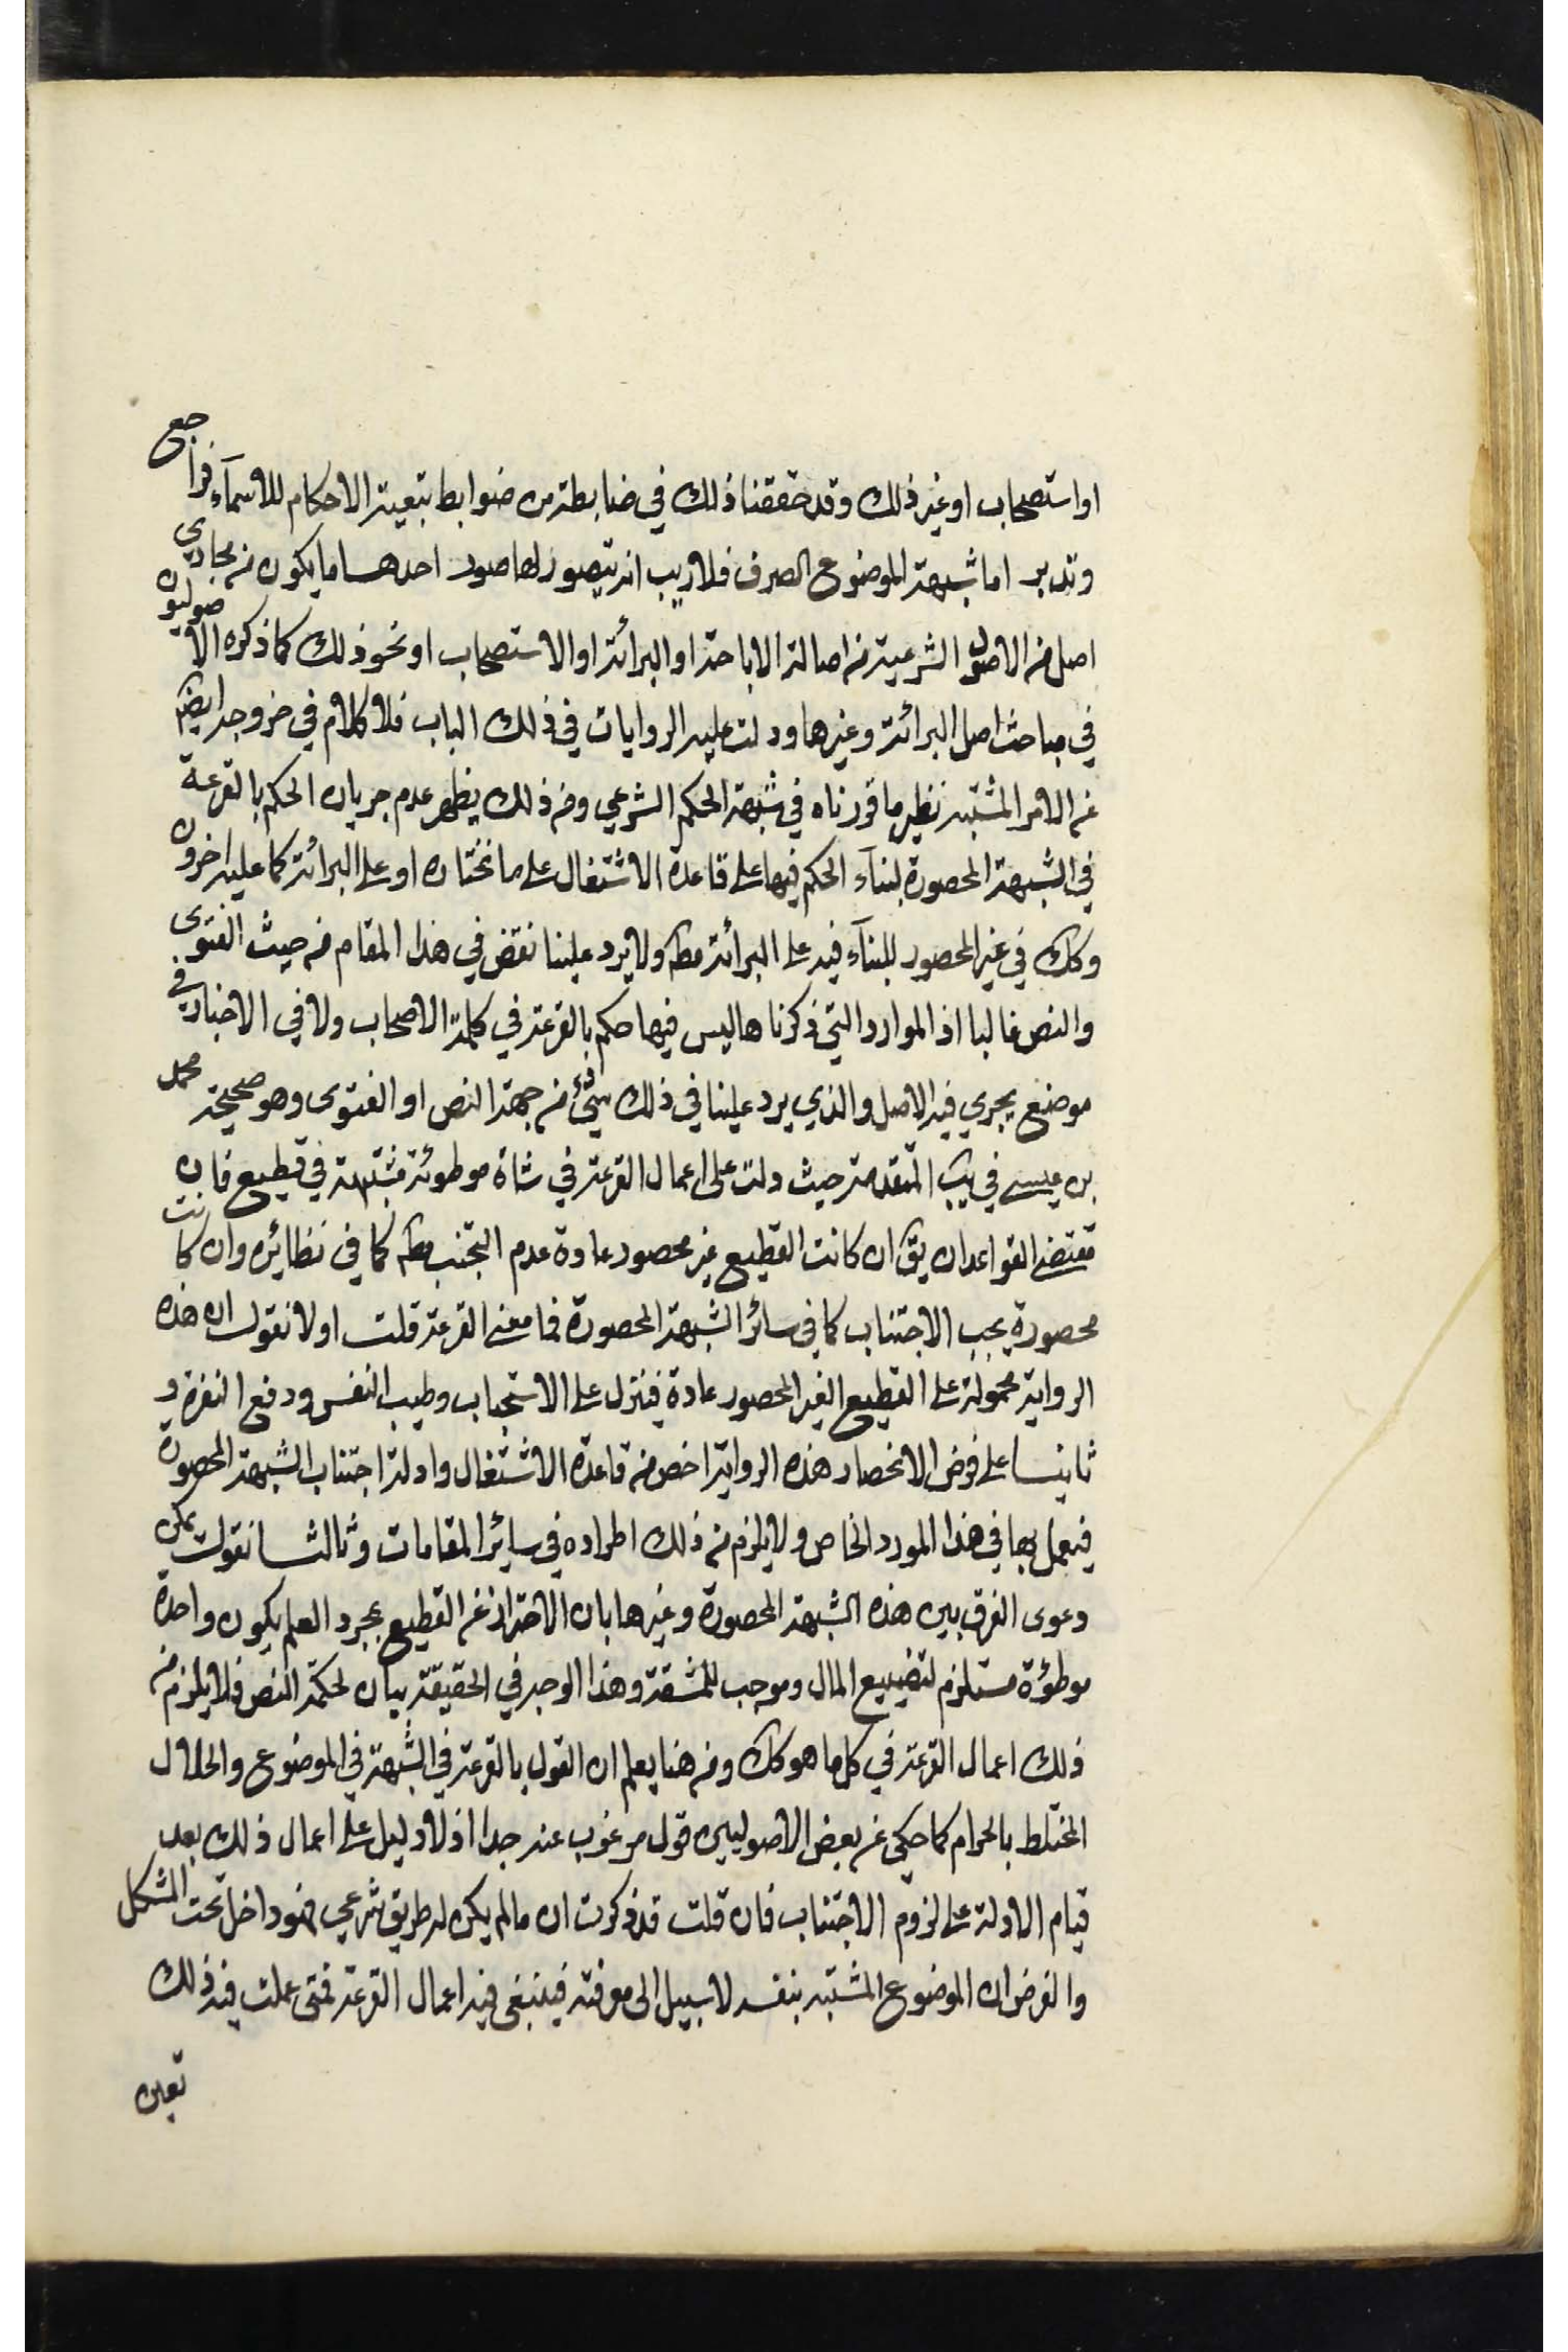 او استصحاب او غير ذلك وقد حققنا ذلك في ضابطة من ضوابط تبعية الاحكام للاسماء فراجع
وتدبر اما شبهة الموضوع الصرف فلاريب انه يتصور لها صور احدهما ما يكون من مجاري
اصل من الاصول الشرعية من اصالة الاباحة او البرائة او الاستصحاب او نحو ذلك كما ذكره الاصوليون
في مباحث اصل البرائة وغيرها ودلت عليه الروايات في ذلك الباب فلا كلام في خروجه ايضا
عن الامر المشتبه نظير ما قررناه في شبهة الحكم الشرعي ومن ذلك يظهر عدم جريان الحكم بالقرعة
في الشبهة المحصورة لبناء الحكم فيها على قاعدة الاشتغال على ما نختاره او على البرائة كما عليه اخرون
وكك في غير المحصور للبناء فيه على البرائة مط ولا يرد علينا نقض في هذا المقام من حيث الفتوى
والنص غالبا اذ الموارد التي ذكرناها ليس فيها حكم بالقرعة في كلمة الاصحاب ولا في الاخبار في
موضع يجري فيه الاصل والذي يرد علينا في ذلك شئ من جهة النص او الفتوى وهو صحيحة محمد
بن عيسى في يب المتقدمة حيث دلت على اعمال القرعة في شاة موطوئة مشتبهة في قطيع فان
مقتضى القواعد ان يق ان كانت القطيع غير محصور عادة عدم التجنب مط كما في نظائره وان كانت
محصورة يجب الاجتناب كما في سائر الشبهة المحصورة فما معنى القرعة قلت اولا نقول ان هذه
الرواية محمولة على القطيع الغير المحصور عادة فينزل على الاستحباب وطيب النفس ودفع النفرة و
ثانيا على فرض الانحصار هذه الرواية اخص من قاعدة الاشتغال وادلة اجتناب الشبهة المحصورة
فيعمل بها في هذا المورد الخاص ولا يلزم من ذلك اطراده في سائر المقامات وثالثا نقول يمكن
دعوى الفرق بين هذه الشبهة المحصورة وغيرها بان الاحتراز عن القطيع بمجرد العلم بكون واحدة
موطؤة مستلزم لتضييع المال وموجب للمشقة وهذا الوجه في الحقيقة بيان لحكمة النص فلا يلزم من
ذلك اعمال القرعة في كل ما هو كك ومن هنا يعلم ان القول بالقرعة في الشبهة في الموضوع والحلال
المختلط بالحرام كما حكي عن بعض الاصوليين قول مرغوب عنه جدا اذ لا دليل على اعمال ذلك بعد
قيام الادلة على لزوم الاجتناب فان قلت قد ذكرت ان ما لم يكن له طريق شرعي فهو داخل تحت المشكل
والفرض ان الموضوع المشتبه بنفسه لا سبيل الى معرفته فينبغي فيه اعمال القرعة فمتى عملت فيه ذلك
تعين